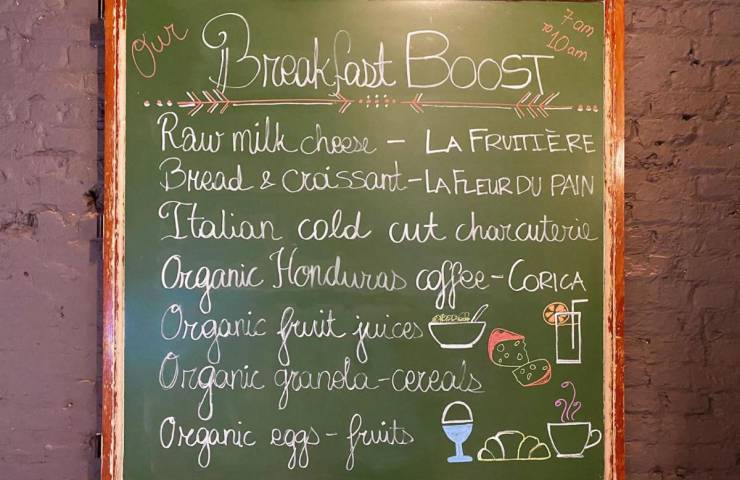 Our
Breakfast BOOST
7am
to 10am
Raw milk cheese - LA FRUITIÈRE
Bread & croissant - LA FLEUR DU PAIN
Italian cold cut charcuterie
Organic Honduras coffee - CORICA
Organic fruit juices
Organic granola-cereals
Organic eggs - fruits